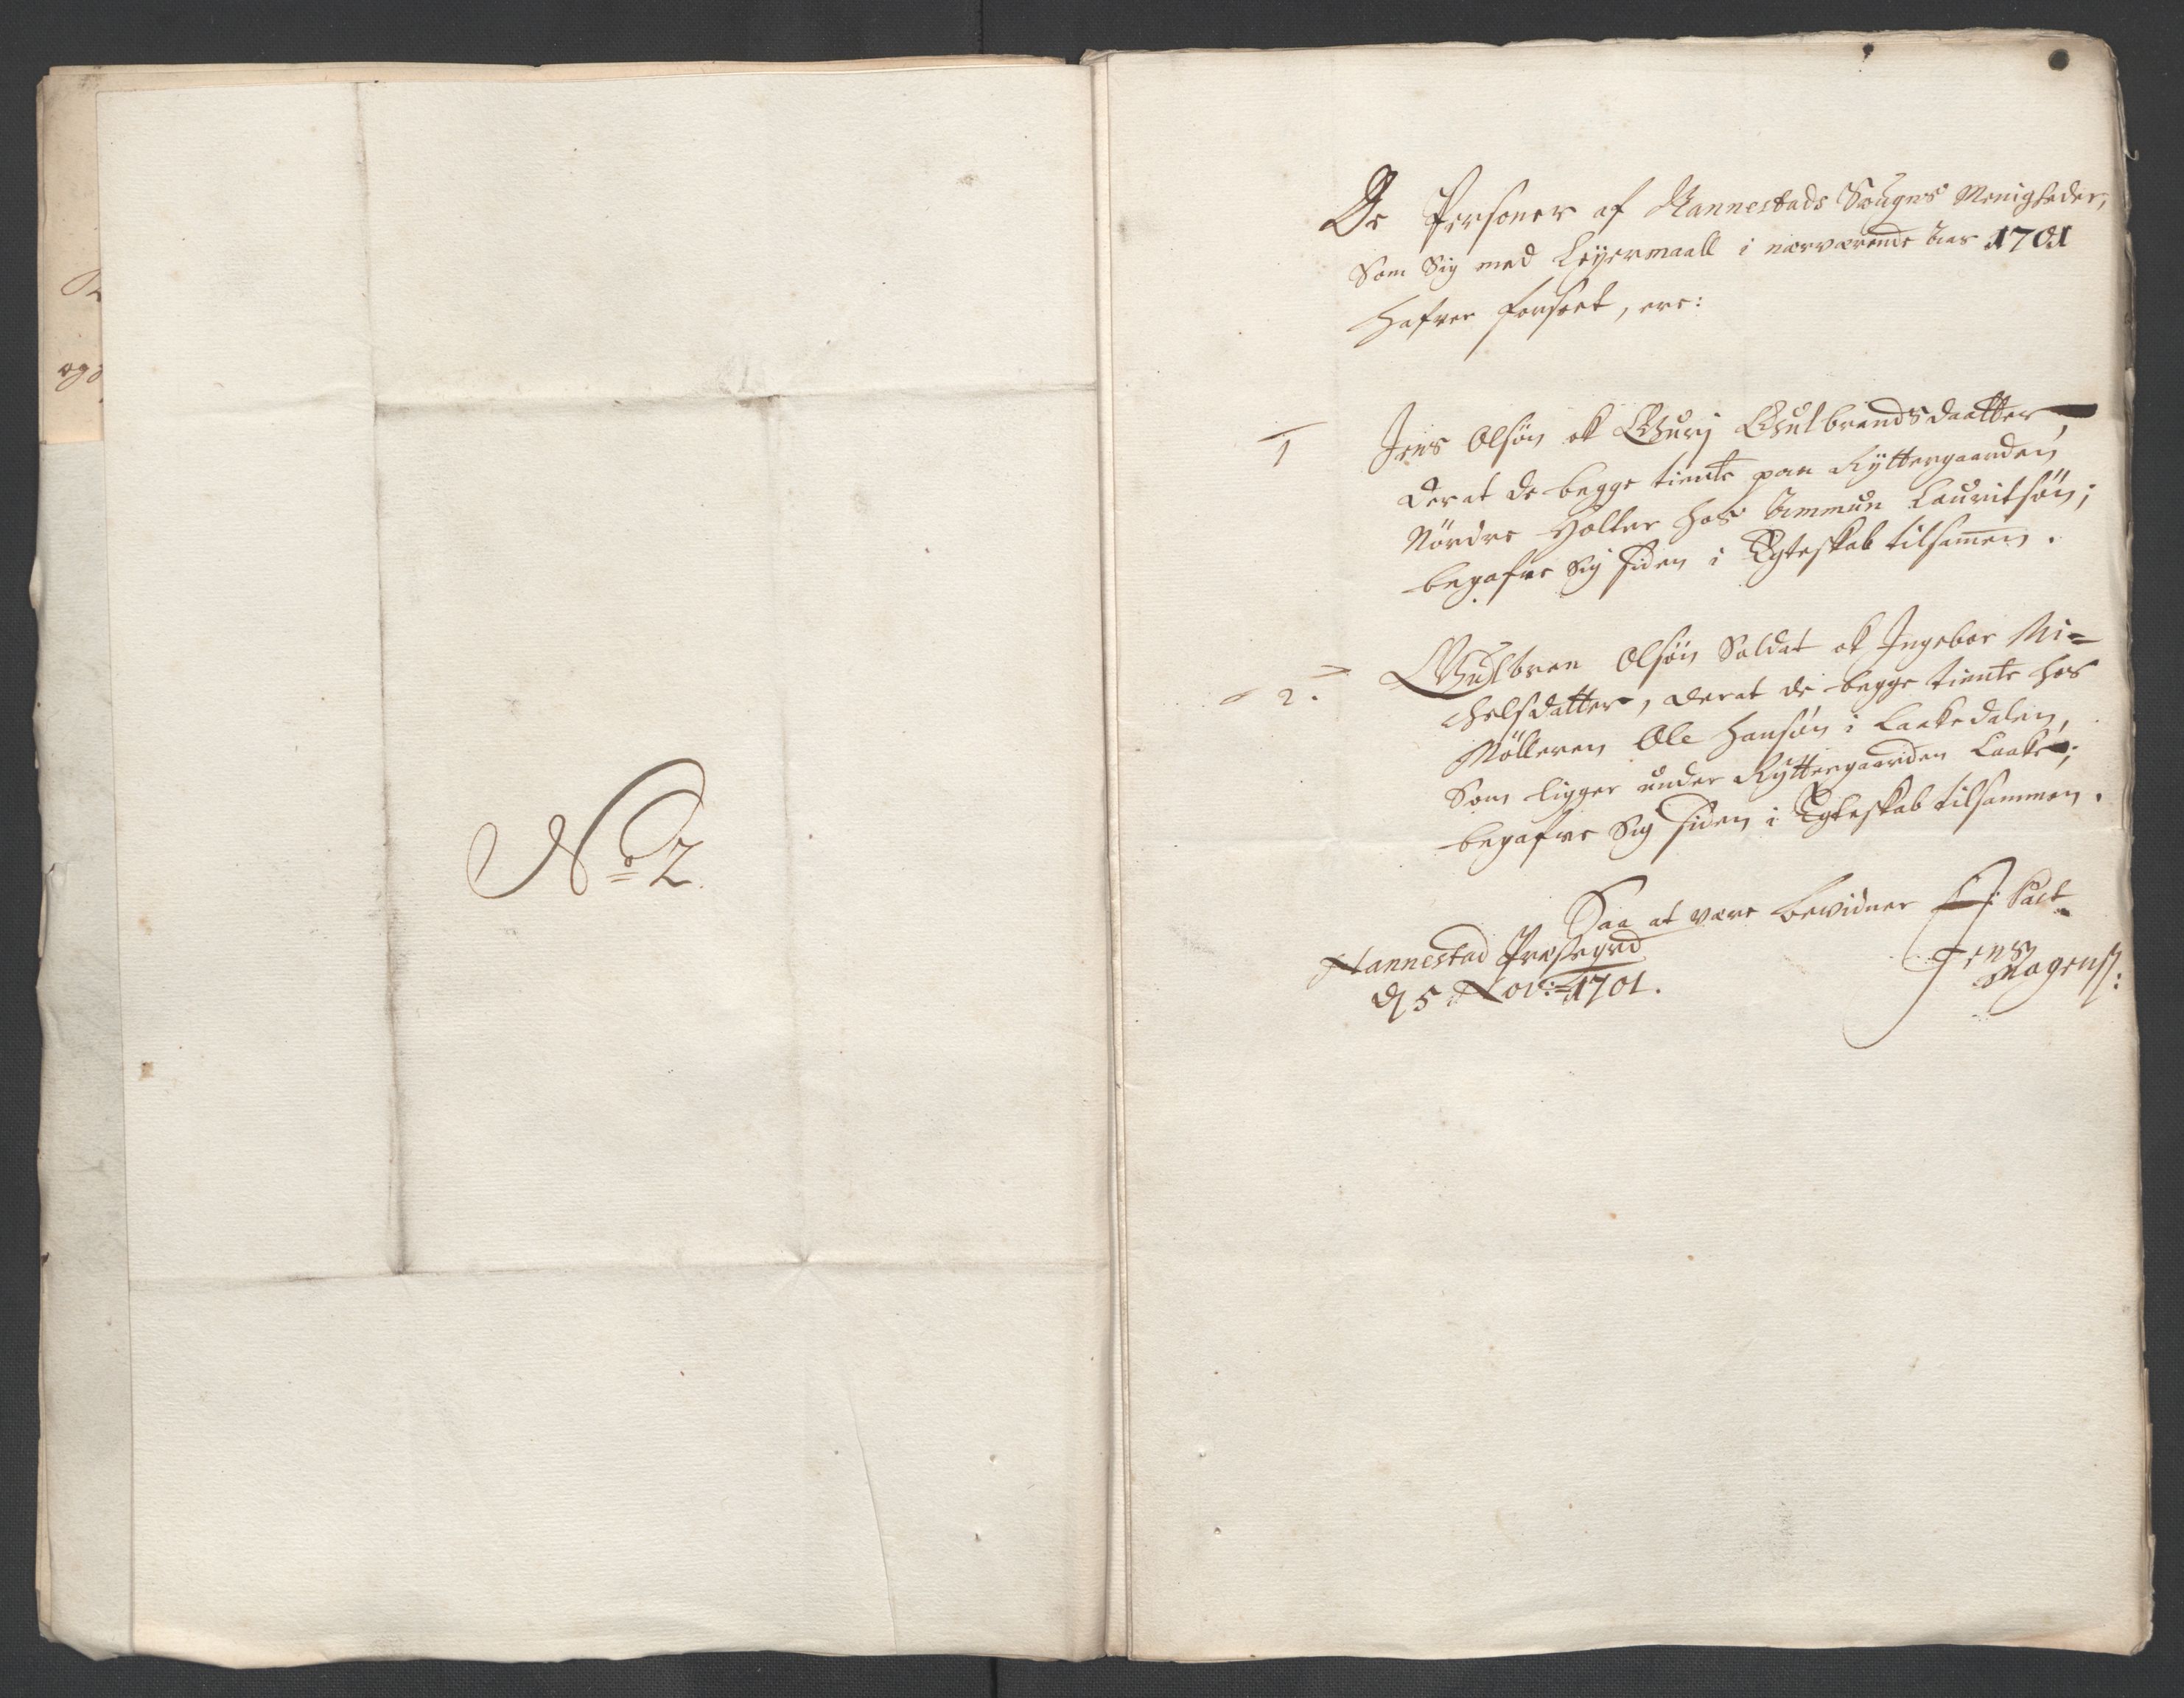 og
No 2.
De Personer af Nannestads Sougns Menigheder,
Som Sig med Leyermaall i nærværende Aar 1701
Hafver forseet, ere:
1 Jens Olsøn ok Gurj Gulbrandsdaatter,
Der at de begge tiente paa Ryttergaarden
Nørdre Holter hos Ammun Lauritsøn;
begafve Sig siden i Egteskab tilsamen.
2. Gulbran Olsøn Soldat ok Ingebor Mi-
chelsdatter, Der at de begge tiente hos
Mølleren Ole Hansøn i Laakedalen,
Som ligger under Ryttergaarden Laake;
begafve Sig siden i Egteskab tilsammen.
Saa at være bevidner
Nannestad Præstegrd
d 5 Nov: 1701.
Jens
Mogensß: